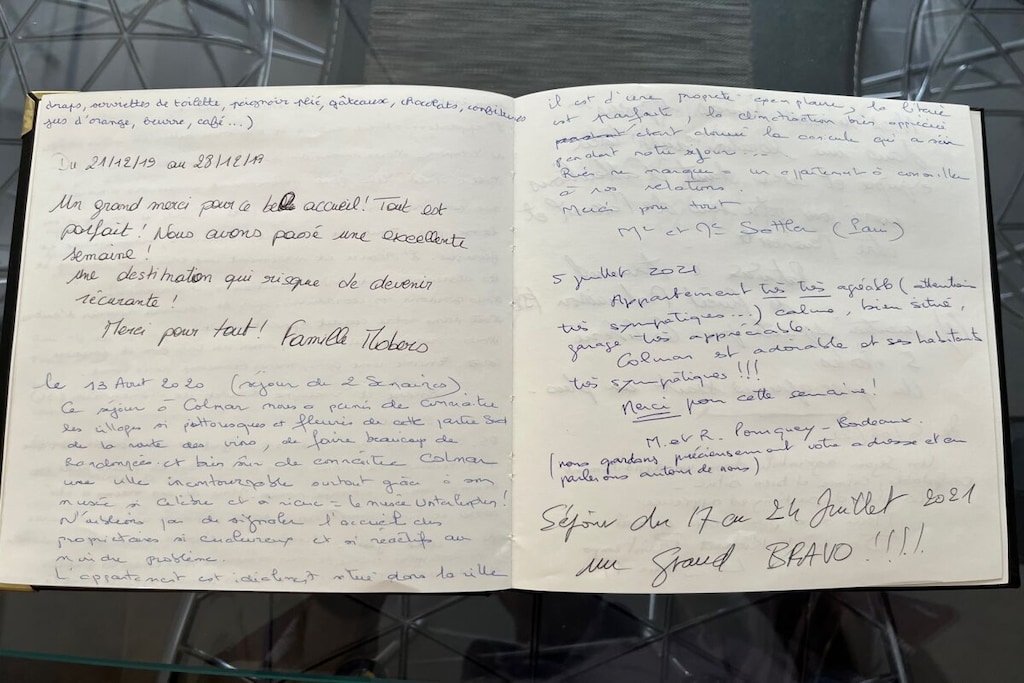 draps, serviettes de toilette, peignoir plié, gâteaux, chocolats, confitures
jus d'orange, beurre, café...)
Du 21/12/19 au 28/12/19
Un grand merci pour ce bel accueil! Tout est
parfait! Nous avons passé une excellente
semaine!
Une destination qui risque de devenir
récurante!
Merci pour tout! Famille
le 13 Aout 2020 (séjour de 2 Semaines).
Ce séjour à Colmar nous a permis de connaître
les villages si pittoresques et fleuris de cette partie Sud
de la route des vins, de faire beaucoup de
Randonnées et bien sûr de connaître Colmar
une ville incontournable surtout grâce à son
musée si célèbre et si riche = le musée Unterlinden!
N'oublions pas de signaler l'accueil des
propriétaires si chaleureux et si réactifs au
moindre problème.
L'appartement est idéalement situé dans la ville
il est d'une propreté exemplaire, la literie
est parfaite, la climatisation bien appréciée
étant donné la canicule qui a sévi
pendant notre séjour...
Rien ne manque = un appartement à conseiller
à nos relations.
Merci pour tout
Mr et Me (Paris)
5 juillet 2021
Appartement très très agréable (attention
très sympatiques...) calme, bien situé,
garage très appréciable.
Colmar est adorable et ses habitants
très sympatiques!!!
Merci pour cette semaine!
M. et R. - Bordeaux.
(nous gardons précieusement votre adresse et en
parlerons autour de nous)
Séjour du 17 au 24 Juillet 2021
un Grand BRAVO!!!!